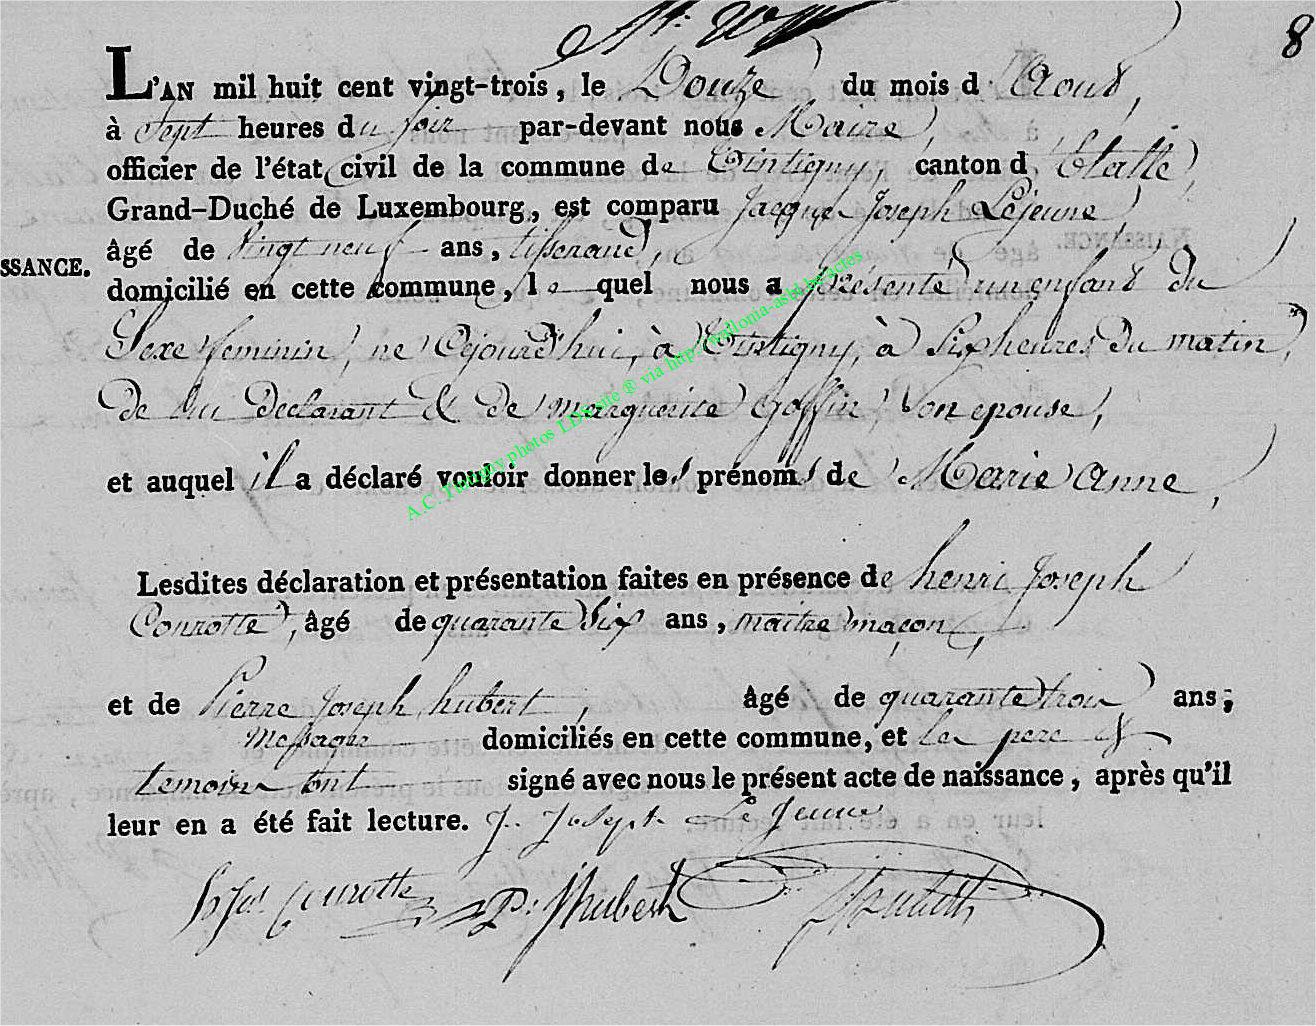 8
L'AN mil huit cent vingt-trois, le Douze du mois d'Aout,
à Sept heures du soir par-devant nous Maire,
officier de l'état civil de la commune de Tintigny, canton d'Etalle,
Grand-Duché de Luxembourg, est comparu Jacque Joseph Lejeune
âgé de vingt neuf ans, tisserand,
SSANCE.
domicilié en cette commune, lequel nous a présenté un enfant du
Sexe feminin, né cejourd'hui, à Tintigny, à Six heures du matin,
de lui Declarant & de marguerite Goffin, son epouse,
et auquel il a déclaré vouloir donner les prénoms de Marie Anne,
Lesdites déclaration et présentation faites en présence de henri Joseph
Conrotte, âgé de quarante Six ans, maitre maçon,
et de Pierre Joseph hubert, âgé de quarante trois ans;
messager domiciliés en cette commune, et les pere &
temoins ont signé avec nous le présent acte de naissance, après qu'il
leur en a été fait lecture. J. Joseph Le Jeune
h Jos. Conrotte P: J hubert
A.C. Tintigny photos LDHulle ® via http://wallonia-asbl.be/actes